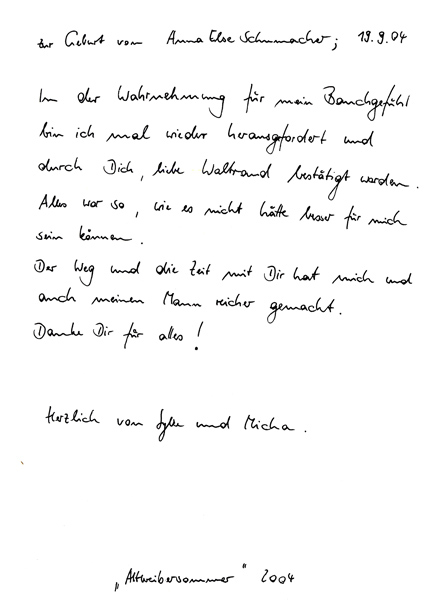 zur Geburt von Anna Else Schumacher; 19.9.04
In der Wahrnehmung für mein Bauchgefühl
bin ich mal wieder herausgefordert und
durch Dich, liebe Waltraud bestätigt worden.
Alles war so, wie es nicht hätte besser für mich
sein können.
Der Weg und die Zeit mit Dir hat mich und
auch meinen Mann reicher gemacht.
Danke Dir für alles!
Herzlich von und Micha.
„Altweibersommer“ 2004